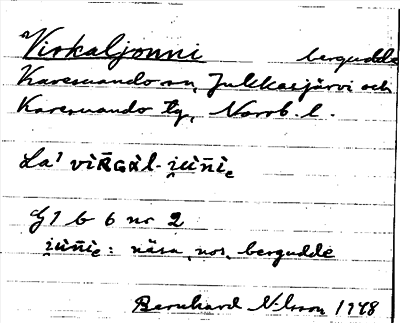 Virkaljonni bergudde
Karesuando sn, Jukkasjärvi och
Karesuando tg, Norrb. l.
La1
G 1 b 6 nr 2
näsa, nos, bergudde
Bernhard Nilsson 1948